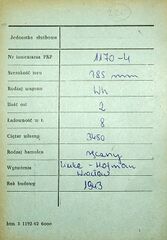 Jednostka służbowa
Nr inwentarza PKP 1170-4
Szerokość toru 785 mm
Rodzaj wagonu Wh
Ilość osi 2
Ładowność w t. 8
Ciężar własny 3450
Rodzaj hamulca ręczny
Wytwórnia Linke-Hofman
Wrocław
Rok budowy 1943